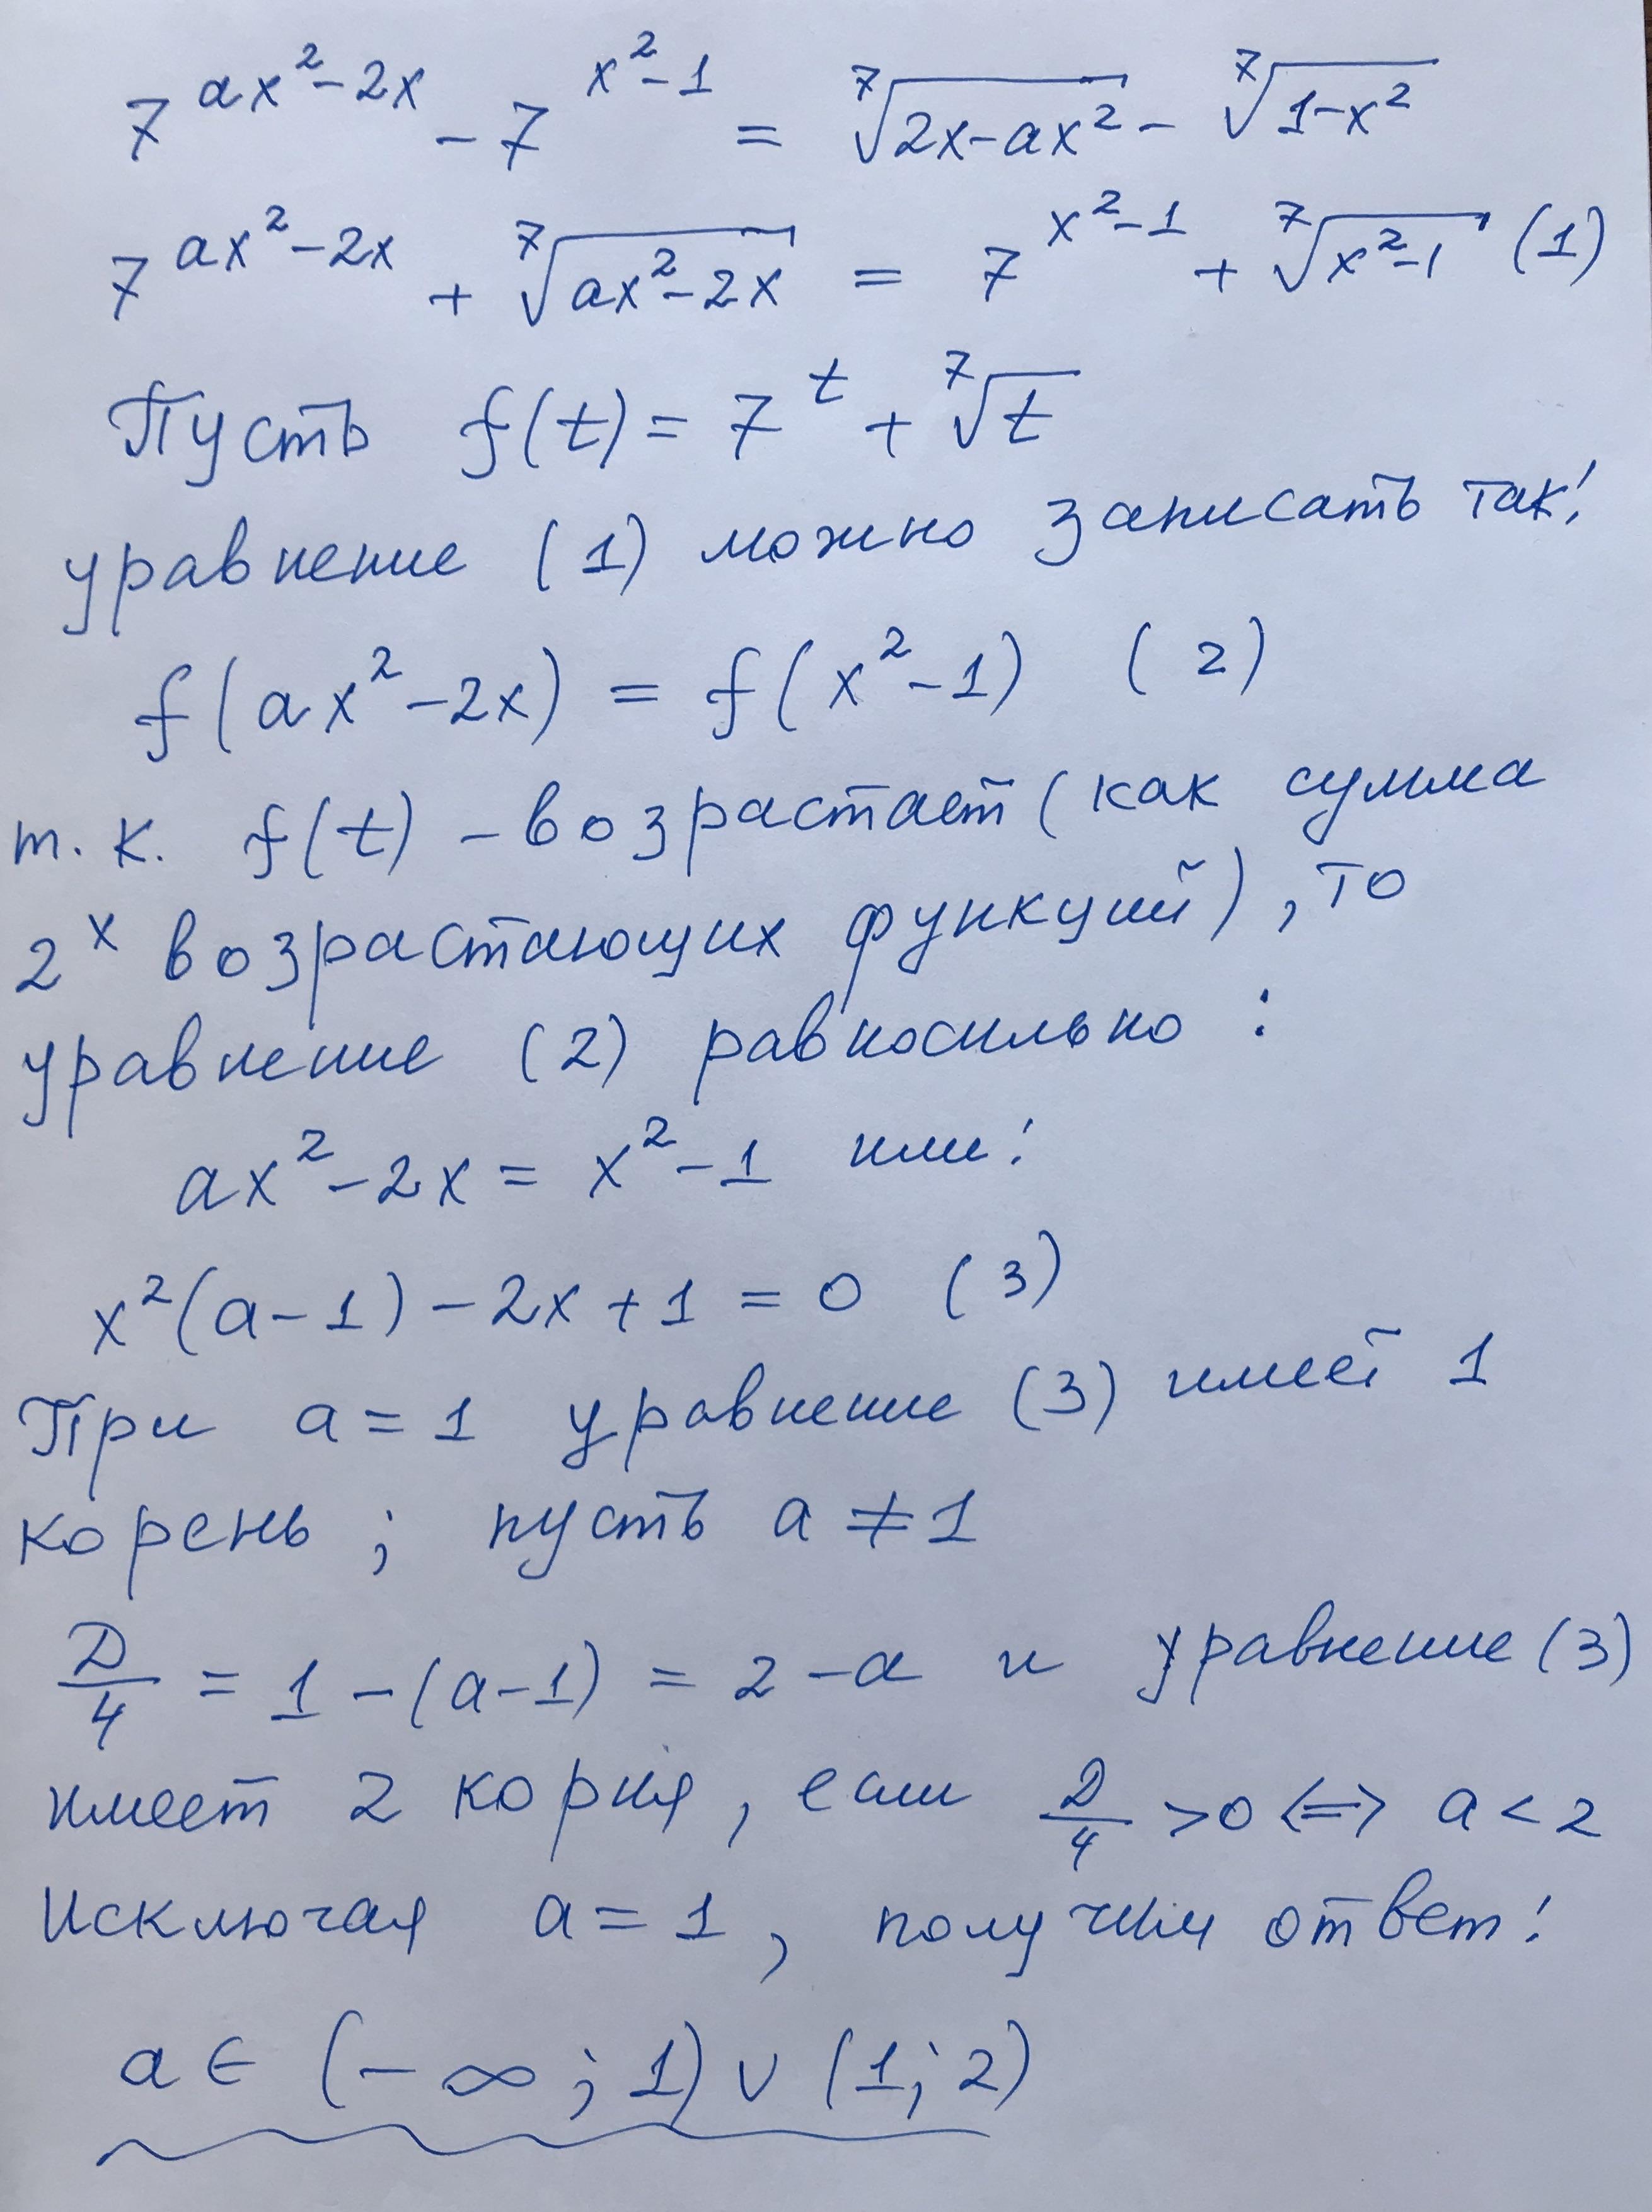 7^(ax²-2x) - 7^(x²-1) = ⁷√(2x-ax²) - ⁷√(1-x²)
7^(ax²-2x) + ⁷√(ax²-2x) = 7^(x²-1) + ⁷√(x²-1) (1)
Пусть f(t) = 7^t + ⁷√t
уравнение (1) можно записать так:
f(ax²-2x) = f(x²-1) (2)
т.к. f(t) - возрастает (как сумма
2ˣ возрастающих функций), то
уравнение (2) равносильно:
ax²-2x = x²-1 или:
x²(a-1) - 2x + 1 = 0 (3)
При a = 1 уравнение (3) имеет 1
корень; пусть a ≠ 1
D/4 = 1 - (a-1) = 2 - a и уравнение (3)
имеет 2 корня, если D/4 > 0 <=> a < 2
Исключая a = 1, получим ответ:
a ∈ (-∞; 1) ∪ (1; 2)